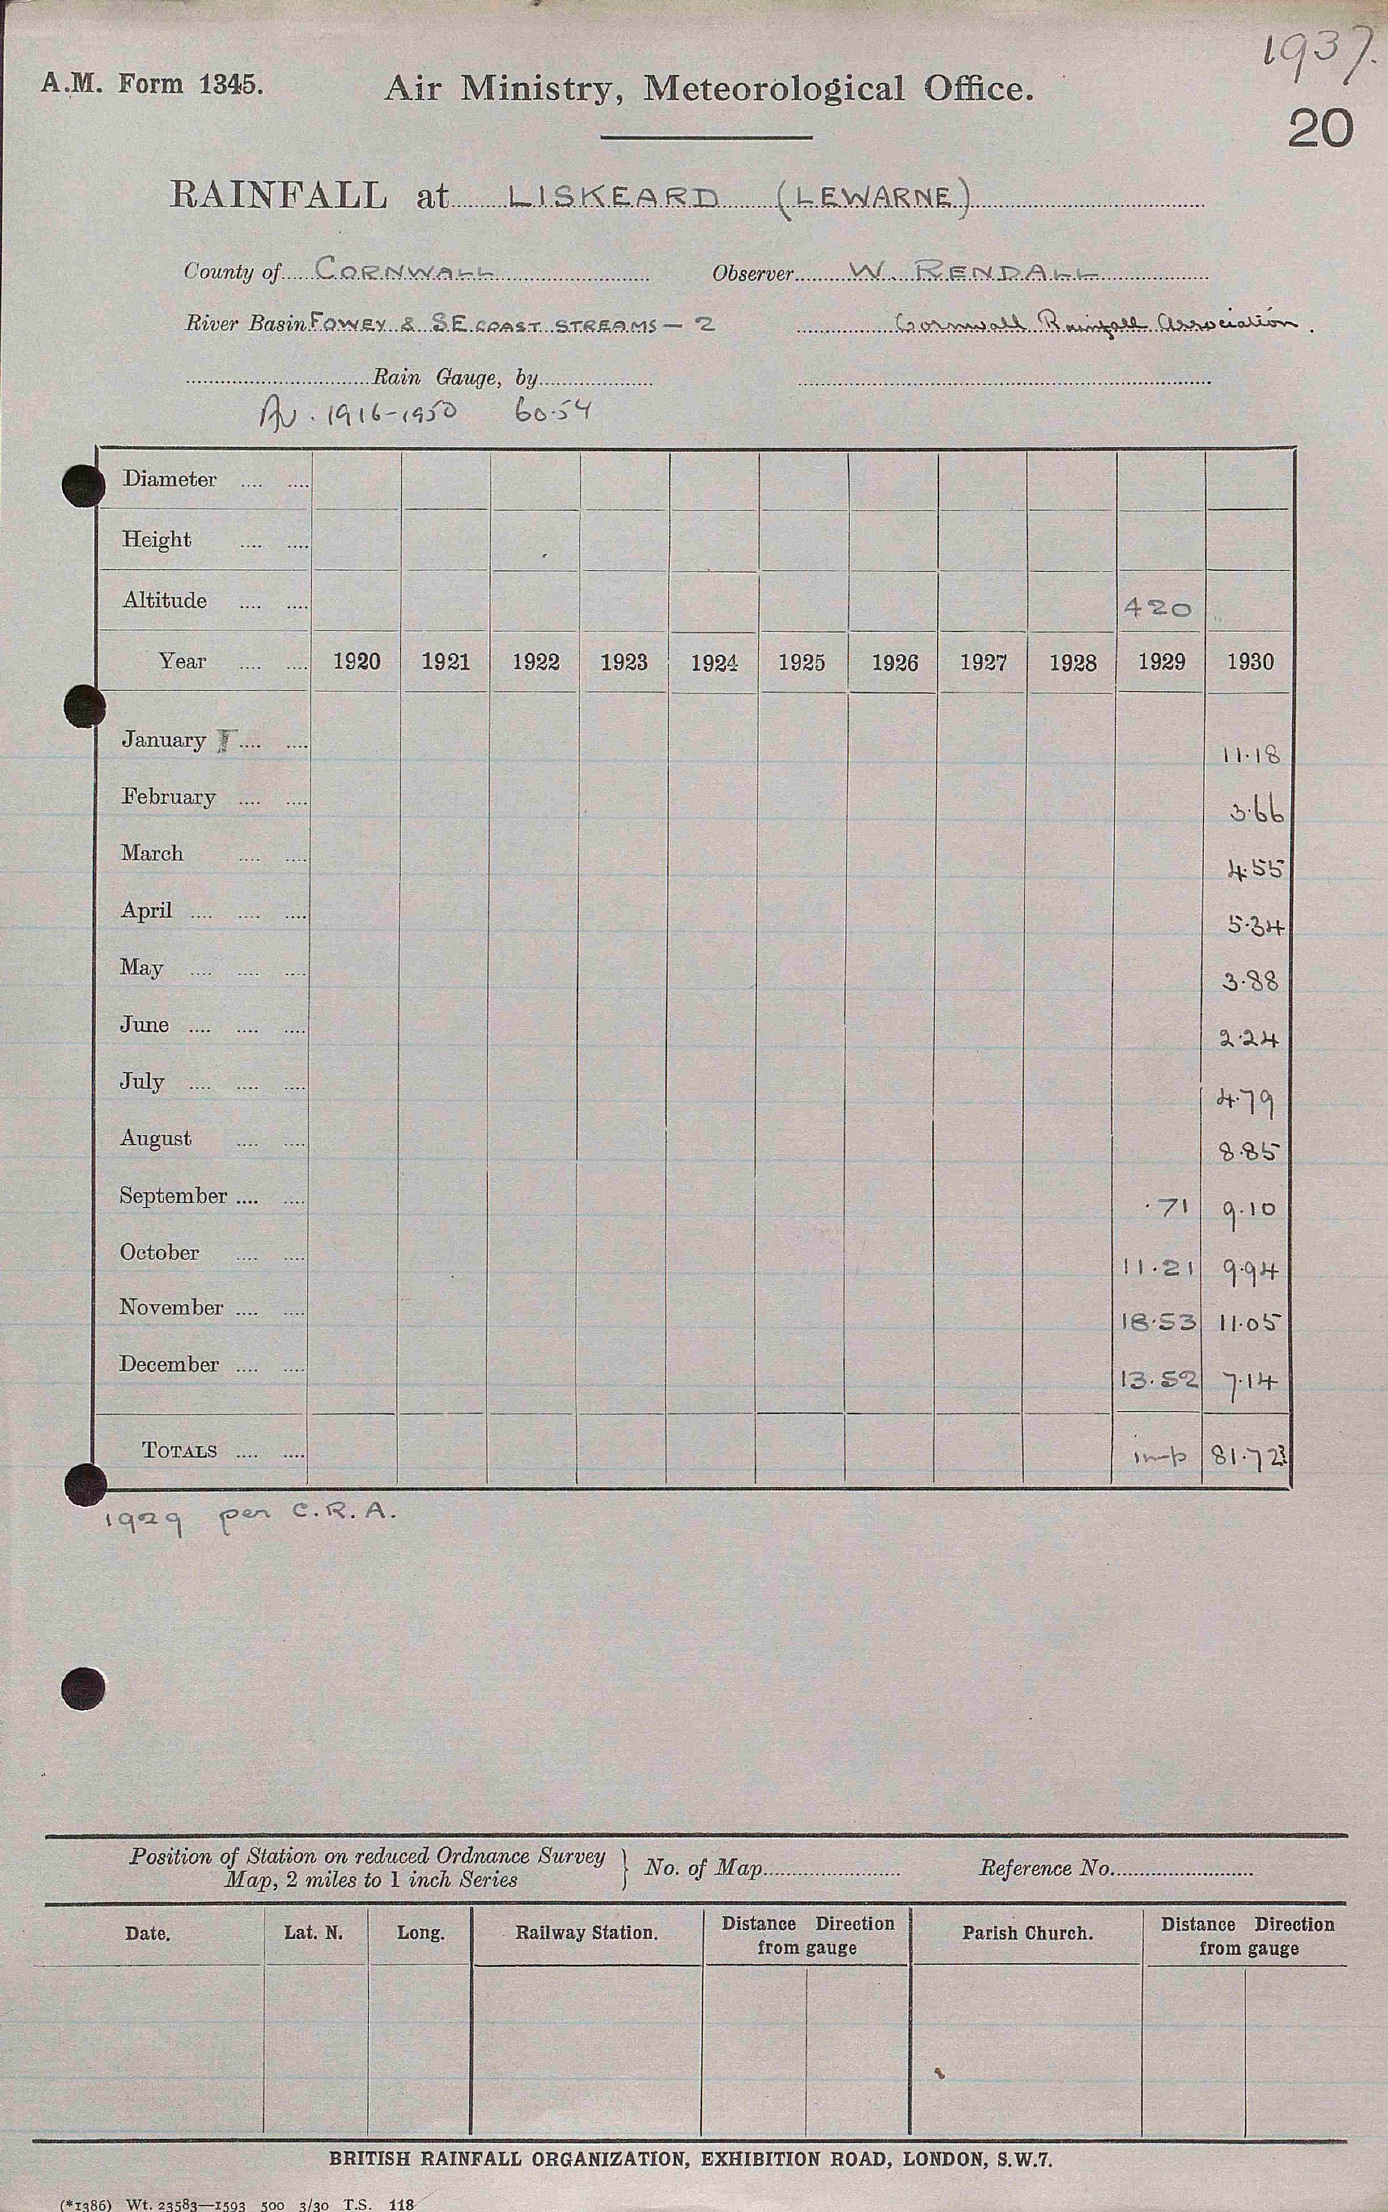 1937.
A.M. Form 1345. Air Ministry, Meteorological Office.
20
RAINFALL at LISKEARD (LEWARNE)
County of CORNWALL Observer W. RENDALL
River Basin FOWEY & SE COAST STREAMS - 2 Cornwall Rainfall Association.
Rain Gauge, by
Av. 1916-1950 60.54
Diameter .... ....
Height .... ....
Altitude .... .... 420 "
Year .... .... 1920 1921 1922 1923 1924 1925 1926 1927 1928 1929 1930
January .... .... 11.18
February .... .... 3.66
March .... .... 4.55
April .... .... .... 5.34
May .... .... .... 3.88
June .... .... .... 2.24
July .... .... .... 4.79
August .... .... 8.85
September .... .... .71 9.10
October .... .... 11.21 9.94
November .... .... 18.53 11.05
December .... .... 13.52 7.14
TOTALS .... .... imp 81.72
1929 per C.R.A.
Position of Station on reduced Ordnance Survey
Map, 2 miles to 1 inch Series } No. of Map Reference No.
Date. Lat. N. Long. Railway Station. Distance Direction from gauge Parish Church. Distance Direction from gauge
BRITISH RAINFALL ORGANIZATION, EXHIBITION ROAD, LONDON, S.W.7.
(*1386) Wt. 23583—1593 500 3/30 T.S. 118